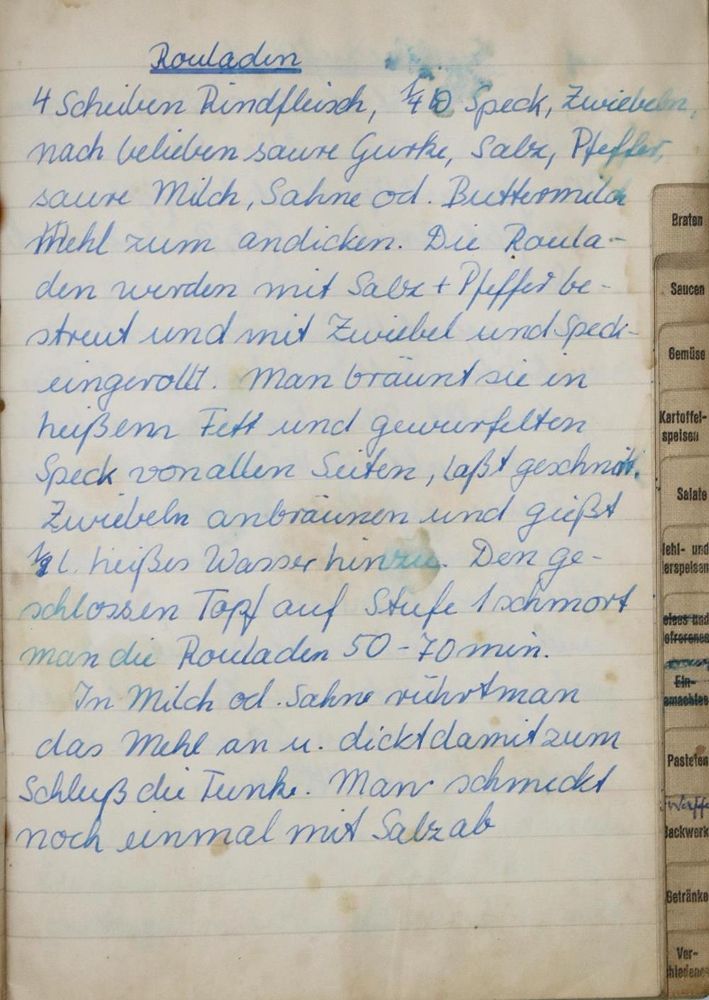 Rouladen
4 Scheiben Rindfleisch, 1/4 Speck, Zwiebeln,
nach belieben saure Gurke, Salz, Pfeffer,
saure Milch, Sahne od. Buttermilch
Mehl zum andicken. Die Roula-
den werden mit Salz + Pfeffer be-
streut und mit Zwiebel und Speck-
eingerollt. Man bräunt sie in
heißem Fett und gewürfelten
Speck von allen Seiten, laßt geschnitt.
Zwiebeln anbräunen und gießt
l. heißes Wasser hinzu. Den ge-
schlossen Topf auf Stufe 1 schmort
man die Rouladen 50-70 min.
In Milch od. Sahne rührt man
das Mehl an u. dickt damit zum
Schluß die Tunke. Man schmeckt
noch einmal mit Salz ab
Braten
Saucen
Gemüse
Kartoffel-
speisen
Salate
ehl- und
erspeisen
eises und
efrorenes
Ein-
emachtes
Pasteten
Waff
Backwerk
Getränke
Ver-
chiedenes